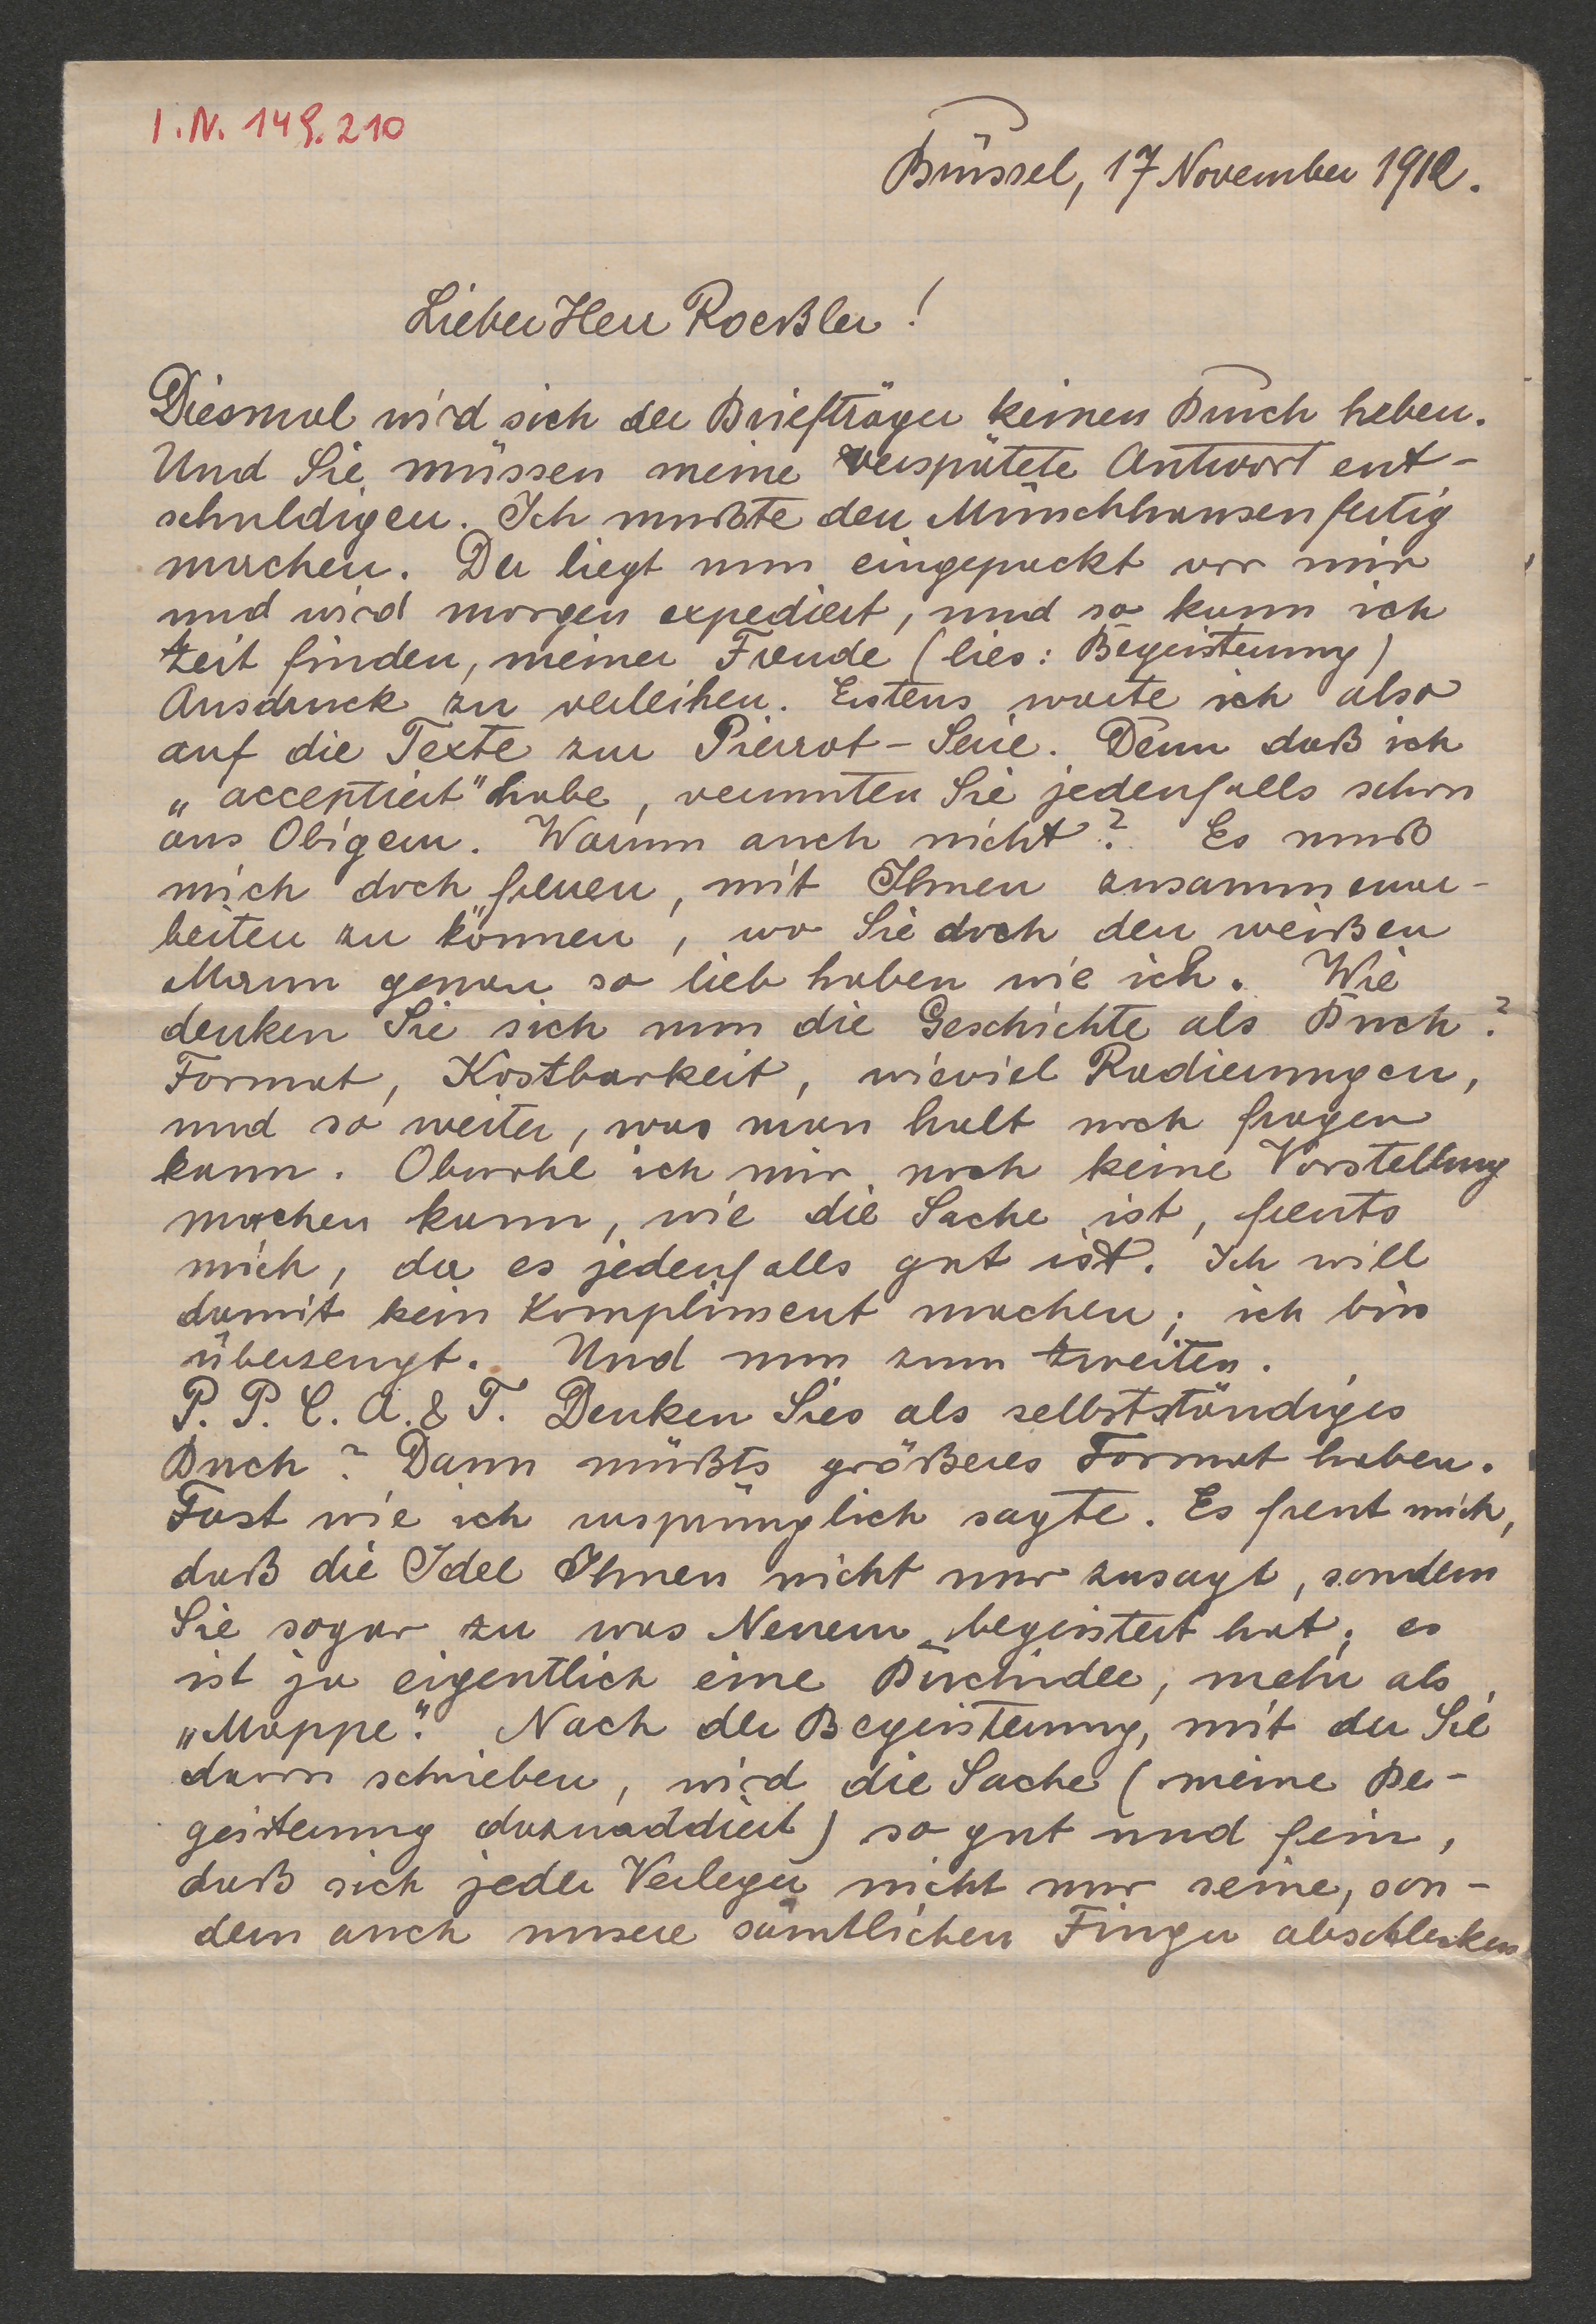 I.N. 149.210
Brüssel, 17 November 1912.
Lieber Herr Roeßler!
Diesmal wird sich der Briefträger keinen Bruch heben.
Und Sie müssen meine verspätete Antwort ent-
schuldigen. Ich mußte den Münchhausen fertig
machen. Der liegt nun eingepackt vor mir
und wird morgen expediert, und so kann ich
Zeit finden, meiner Freude (lies: Begeisterung)
Ausdruck zu verleihen. Erstens warte ich also
auf die Texte zur Pierrot-Serie. Denn daß ich
„acceptiert" habe, vermuten Sie jedenfalls schon
aus Obigem. Warum auch nicht? Es muß
mich doch freuen, mit Ihnen zusammenar-
beiten zu können, wo Sie doch den weißen
Mann genau so lieb haben wie ich. Wie
denken Sie sich nun die Geschichte als Buch?
Format, Kostbarkeit, wieviel Radierungen,
und so weiter, was man halt noch fragen
kann. Obwohl ich mir noch keine Vorstellung
machen kann, wie die Sache ist, freuts
mich, da es jedenfalls gut ist. Ich will
damit kein Kompliment machen; ich bin
überzeugt. Und nun zum Zweiten.
P. P. C. A. & T. Denken Sies als selbstständiges
Buch? Dann müßts größeres Format haben.
Fast wie ich ursprünglich sagte. Es freut mich,
daß die Idee Ihnen nicht nur zusagt, sondern
Sie sogar zu was Neuem begeistert hat; es
ist ja eigentlich eine Buchidee, mehr als
„Mappe". Nach der Begeisterung, mit der Sie
davon schrieben, wird die Sache (meine Be-
geisterung dazuaddiert) so gut und fein,
daß sich jeder Verleger nicht nur seine, son-
dern auch unsere sämtlichen Finger abschlecken